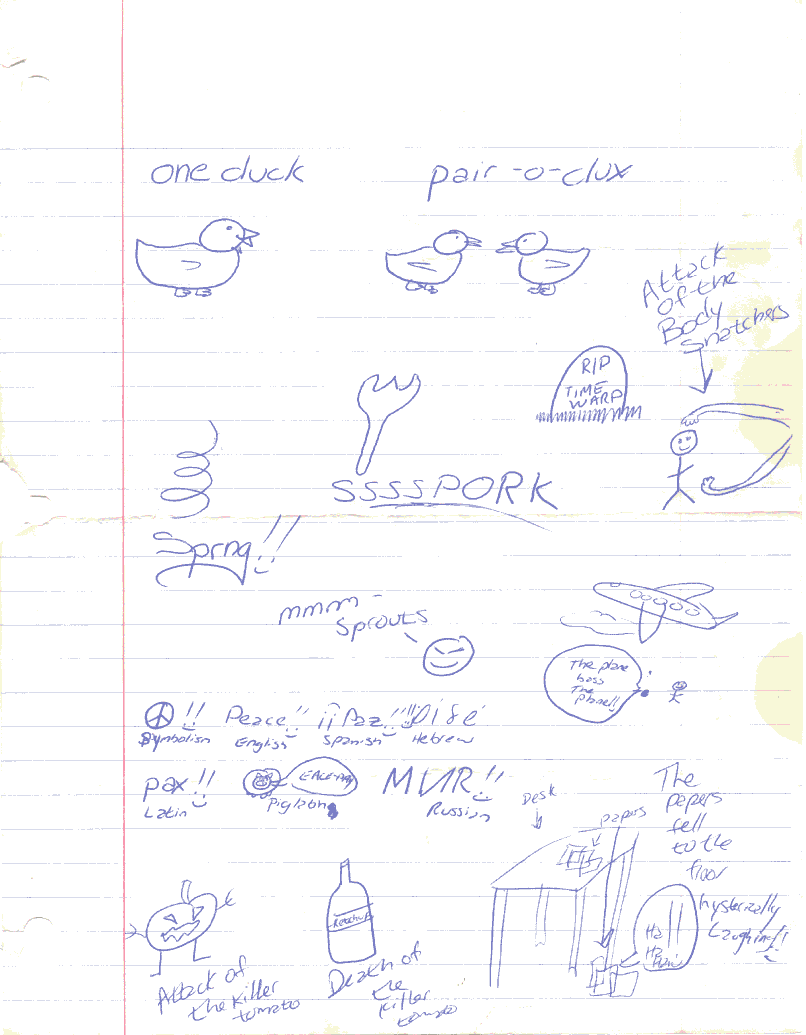 one duck
pair-o-dux
Attack
of the
Body
Snatchers
RIP
TIME
WARP
SSSSPORK
Sprng!!
mmmm -
sprouts
The plane
boss
The
plane!!
!! Peace!! ¡¡Paz!!
Symbolism English Spanish Hebrew
pax!!
Latin
EACE-PAY
Piglatin
МИR!!
Russian
Desk
papers
The
papers
fell
to the
floor
hysterically
Laughing!!
Ha
Ha
Ketchup
Attack of
the killer
tomato
Death of
the
killer
tomato